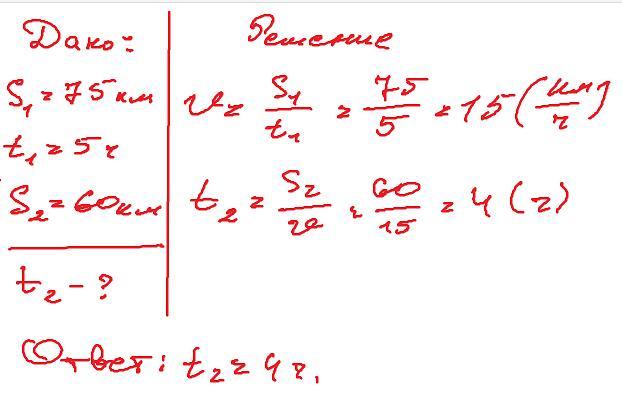 Дано:
S₁ = 75 км
t₁ = 5 ч
S₂ = 60 км
t₂ - ?
Решение
v = S₁/t₁ = 75/5 = 15 (км/ч)
t₂ = S₂/v = 60/15 = 4 (ч)
Ответ: t₂ = 4 ч.